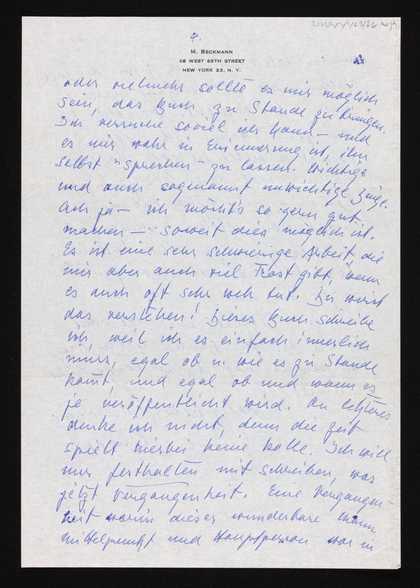 4.
M. BECKMANN
WEST 69TH STREET
NEW YORK 23, N. Y.
oder vielmehr sollte es mir möglich
sein, das Buch zu Stande zu bringen.
Ich versuche soviel ich kann – und
es mir wahr in Erinnerung ist, ihn
selbst "sprechen" zu lassen. Wichtige
und auch sogenannt unwichtige Züge.
Ach ja – ich möcht's so gern gut
machen – soweit dies möglich ist.
Es ist eine sehr schwierige Arbeit, die
mir aber auch viel Trost gibt, wenn
es auch oft sehr weh tut. Du wirst
das verstehen! Dieses Buch schreibe
ich, weil ich es einfach innerlich
muss, egal ob u. wie es zu Stande
kommt, und egal ob und wann es
je veröffentlicht wird. An letzteres
denke ich nicht, denn die Zeit
spielt hierbei keine Rolle. Ich will
nur festhalten mit Schreiben, was
jetzt Vergangenheit. Eine Vergangen-
heit worin dieser wunderbare Mann
Mittelpunkt und Hauptperson war in